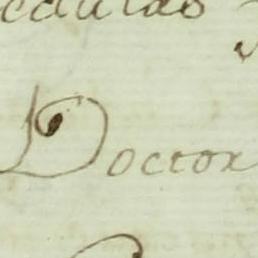 cedulas
Doctor